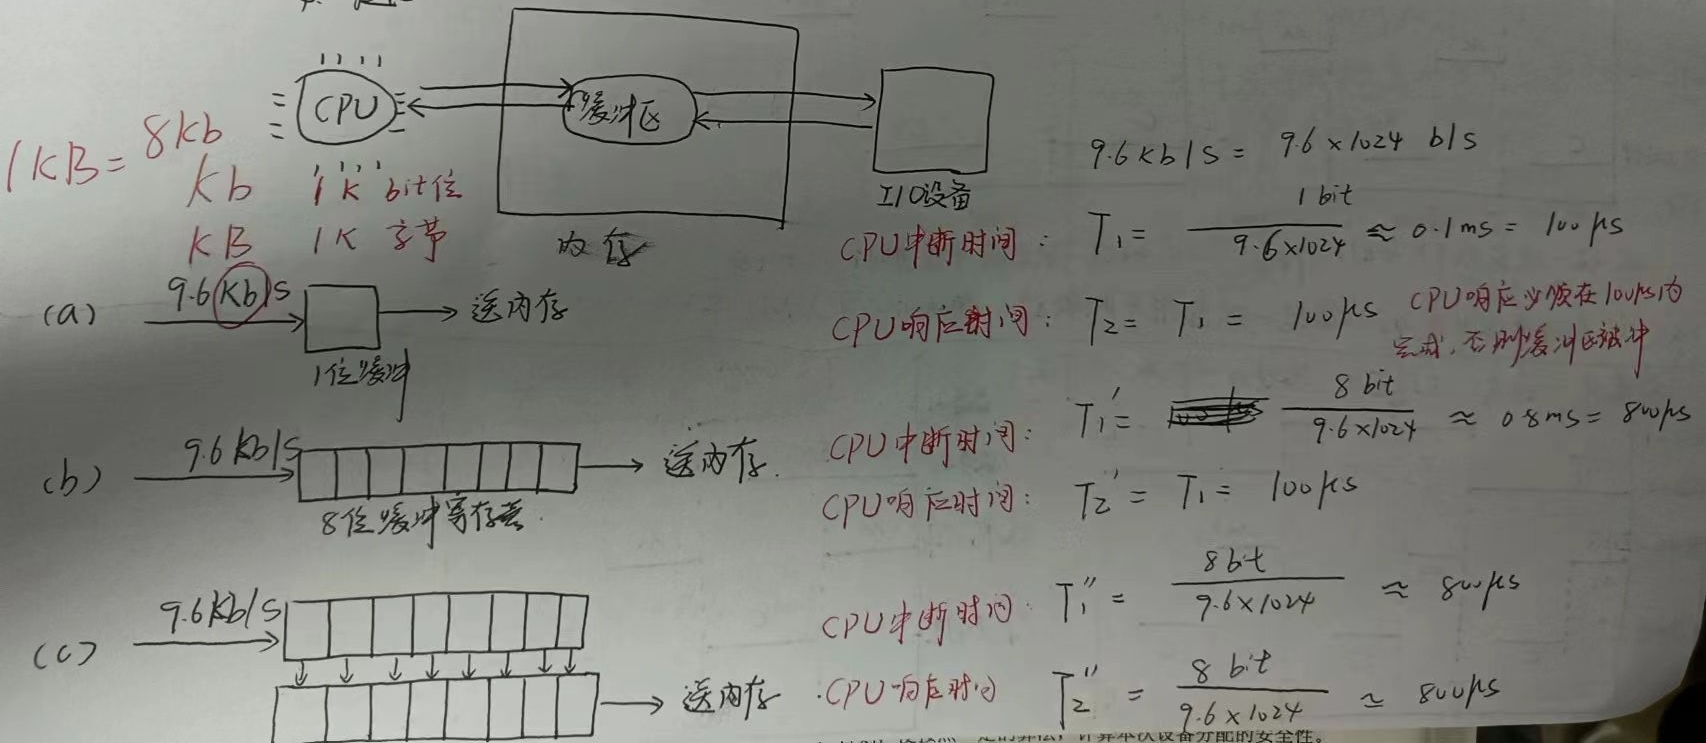 CPU
缓冲区
1KB = 8kb
kb 1K bit位
KB 1K 字节
内存
I/O设备
9.6kb/s = 9.6×1024 b/s
CPU中断时间: T₁ = 1 bit / 9.6×1024 ≈ 0.1ms = 100μs
(a) 9.6kb/s 送内存
1位缓冲
CPU响应时间: T₂ = T₁ = 100μs CPU响应必须在100μs内
完成,否则缓冲区被冲
(b) 9.6kb/s 送内存.
8位缓冲寄存器.
CPU中断时间: T₁′ = 8 bit / 9.6×1024 ≈ 0.8ms = 800μs
CPU响应时间: T₂′ = T₁ = 100μs
(c) 9.6kb/s
送内存
CPU中断时间: T₁″ = 8bit / 9.6×1024 ≈ 800μs
CPU响应时间 T₂″ = 8 bit / 9.6×1024 ≃ 800μs
计算本次设备分配的安全性。